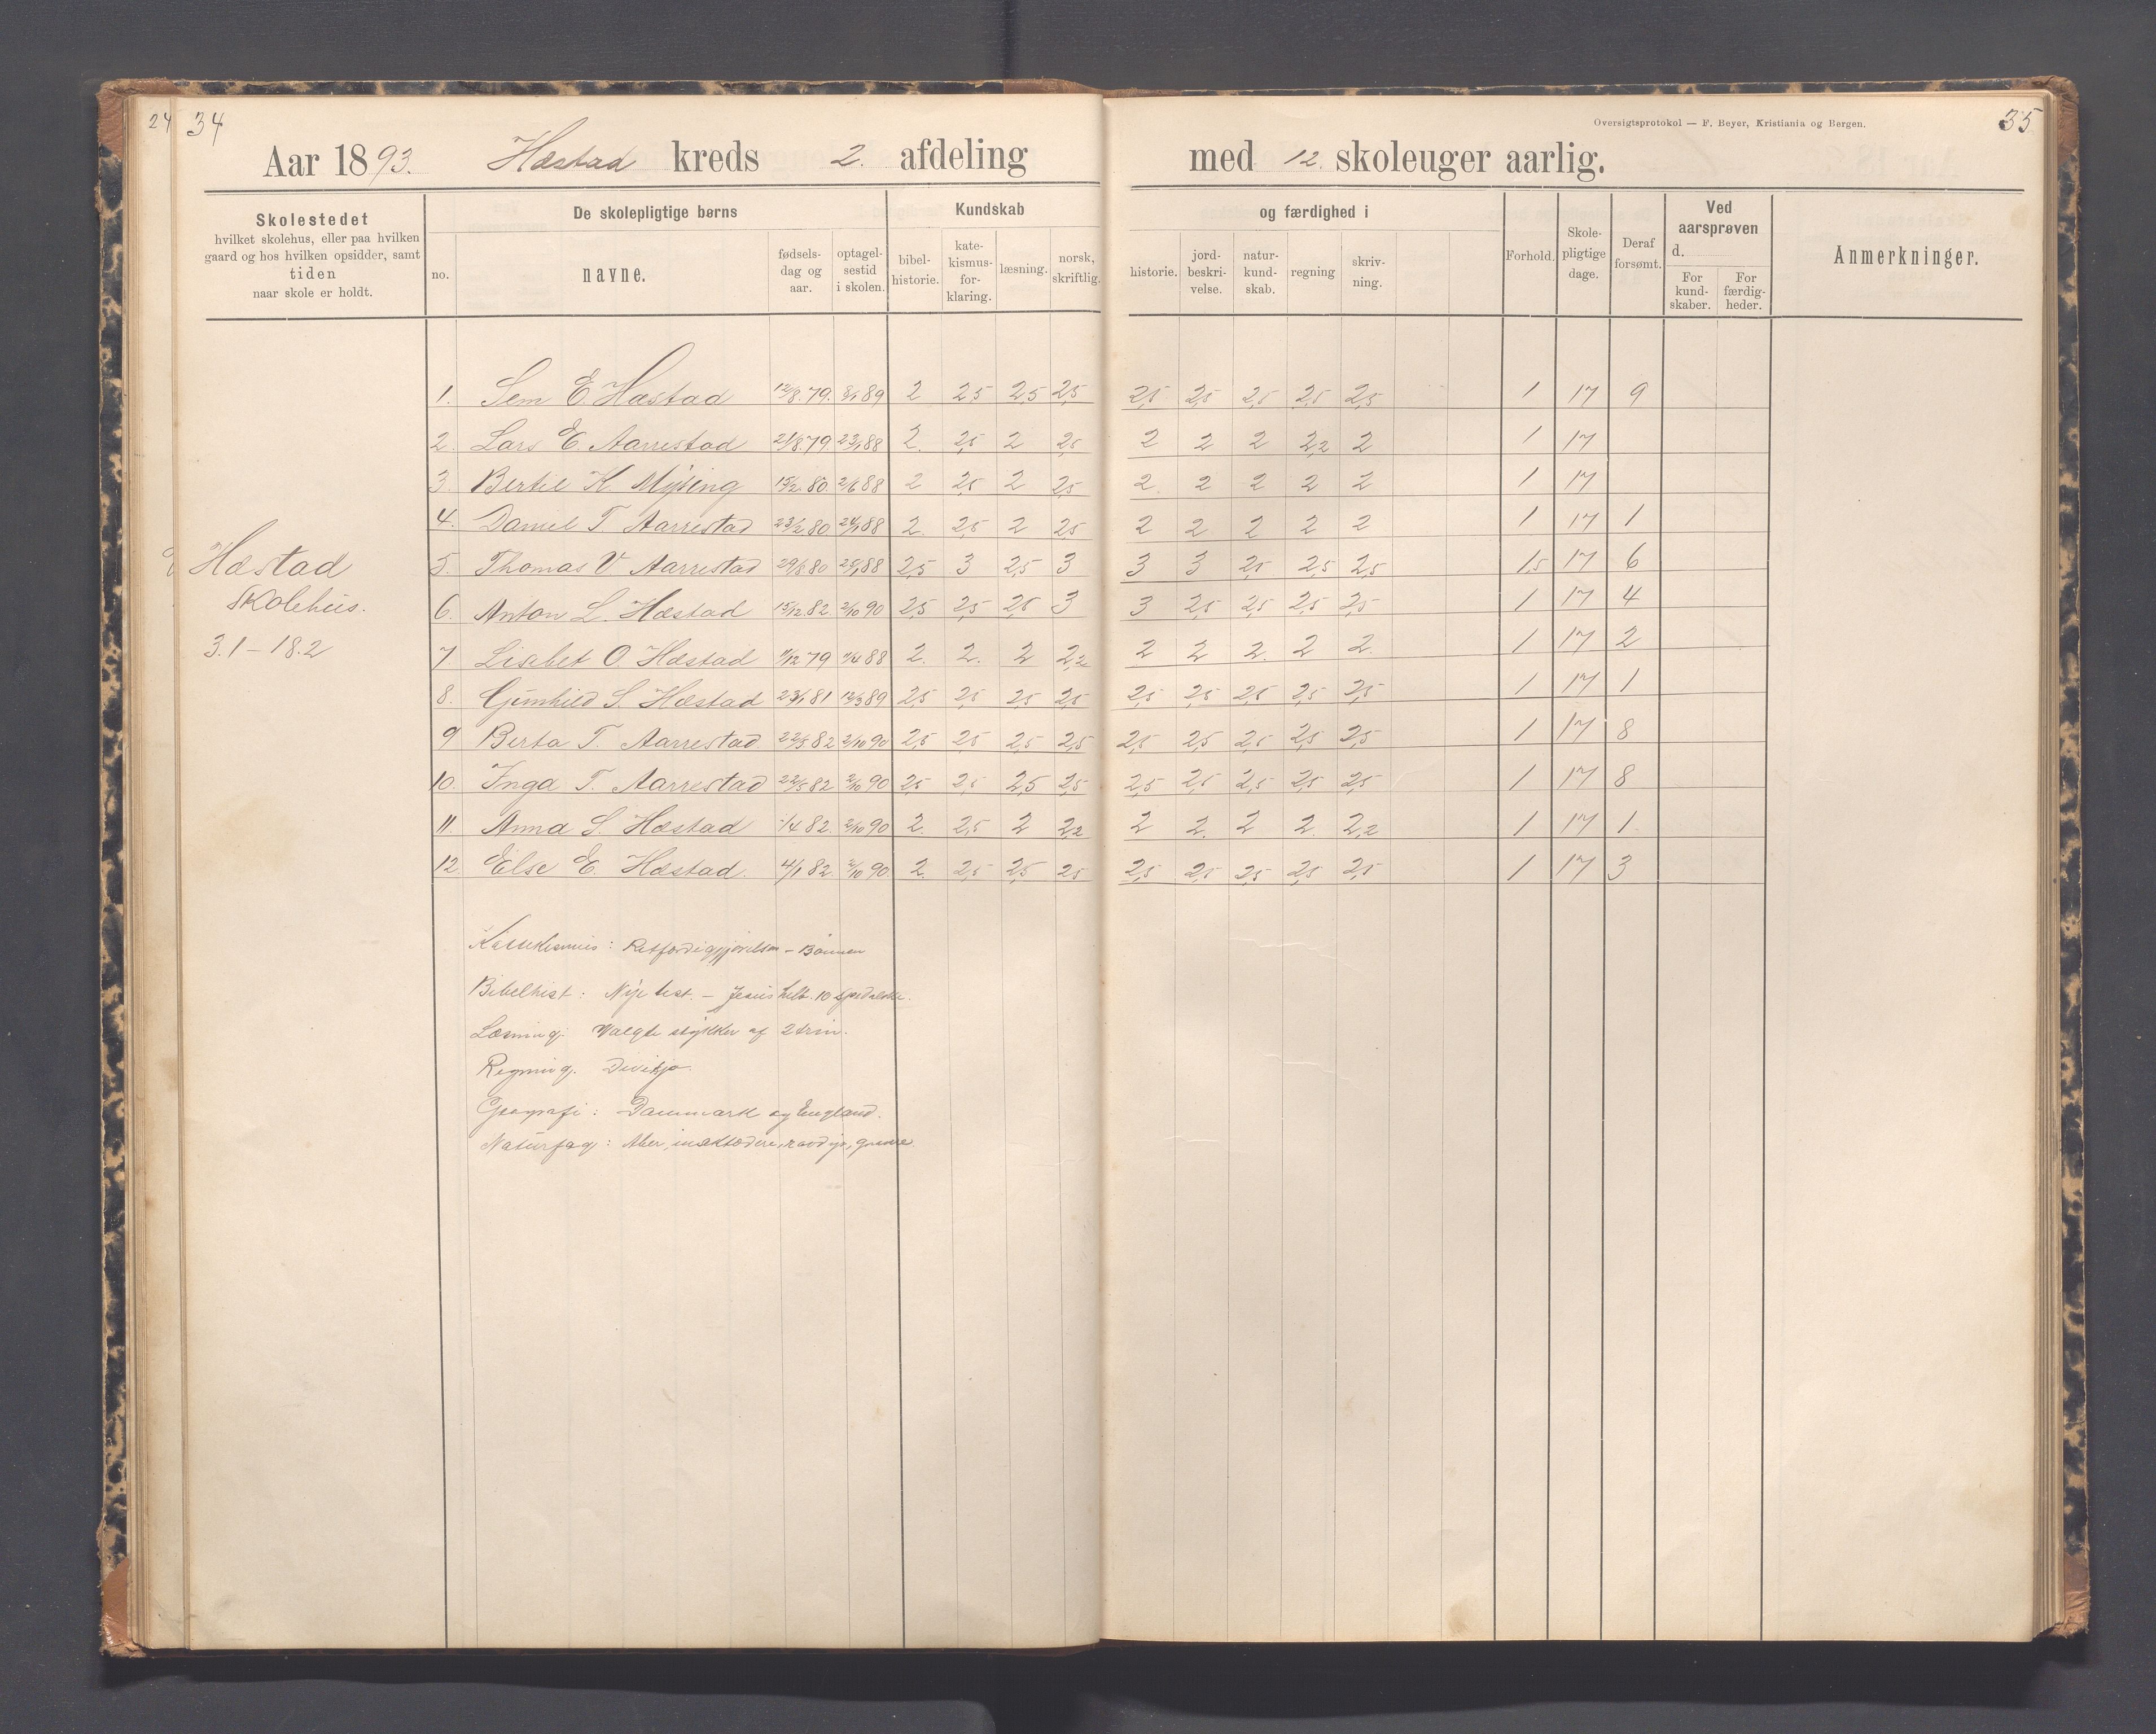 24 34
Aar 1893. Hæstad kreds 2. afdeling
Skolestedet
hvilket skolehus, eller paa hvilken
gaard og hos hvilken opsidder, samt
tiden
naar skole er holdt.
De skolepligtige børns
no. navne. fødsels-dag og aar. optagel-sestid i skolen.
Kundskab
bibel-historie. kate-kismus-for-klaring. læsning. norsk, skriftlig.
Oversigtsprotokol — F. Beyer, Kristiania og Bergen.
35
med 12. skoleuger aarlig.
og færdighed i
historie. jord-beskri-velse. natur-kund-skab. regning skriv-ning.
Forhold. Skole-pligtige dage. Deraf forsømt.
Ved aarsprøven d.
For kund-skaber. For færdig-heder.
Anmerkninger.
1. Sem E. Hæstad 12/8.79. 89 2 2,5 2,5 2,5 2,5 2,5 2,5 2,5 2,5 1 17 9
2. Lars E. Aarrestad 21/8.79. 23/1 88 2. 2,5 2 2,5 2 2 2 2,2 2 1 17
3. Bertil K. Mysing 15/2.80. 2/6 88 2 2,5 2 2,5 2 2 2 2 2 1 17
4. Daniel T. Aarrestad 23/2 80 24/1 88 2. 2,5 2 2,5 2 2 2 2 2 1 17 1
5. Thomas V Aarrestad 29/8 80 88 2,5 3 2,5 3 3 3 2,5 2,5 2,5 1,5 17 6
6. Anton L. Hæstad 15/12 82 2/10 90 2,5 2,5 2,5 3 3 2,5 2,5 2,5 2,5 1 17 4
7 Lisabet O. Hæstad 79 88 2. 2. 2 2,2 2 2 2. 2 2. 1 17 2
8. Gunhild S. Hæstad 23/1 81 12/3 89 2,5 2,5 2,5 2,5 2,5 2,5 2,5 2,5 2,5 1 17 1
9 Berta T. Aarrestad. 22/5 82 2/10 90 2,5 2,5 2,5 2,5 2,5 2,5 2,5 2,5 2,5 1 17 8
10. Inga T. Aarrestad 22/5 82 2/10 90 2,5 2,5 2,5 2,5 2,5 2,5 2,5 2,5 2,5 1 17 8
11. Anna S. Hæstad /4 82. 2/10 90 2. 2,5 2 2,2 2 2. 2 2. 2,2 1 17 1
12 Else E. Hæstad. 4/1 82. 2/10 90 2. 2,5 2,5 2,5 2,5 2,5 2,5 2,5 2,5 1 17 3
Hæstad
Skolehus.
3.1 – 18.2
Katekismus: Retfærdiggjørelsen – Bønnen
Bibelhist: Nye test. – Jesus helb. 10 spedalske.
Læsning: Valgte stykker af 2 trin.
Regning. Divisjo.
Geografi: Danmark og England.
Naturfag: Aber, insektædere, rovdyr, gnavere